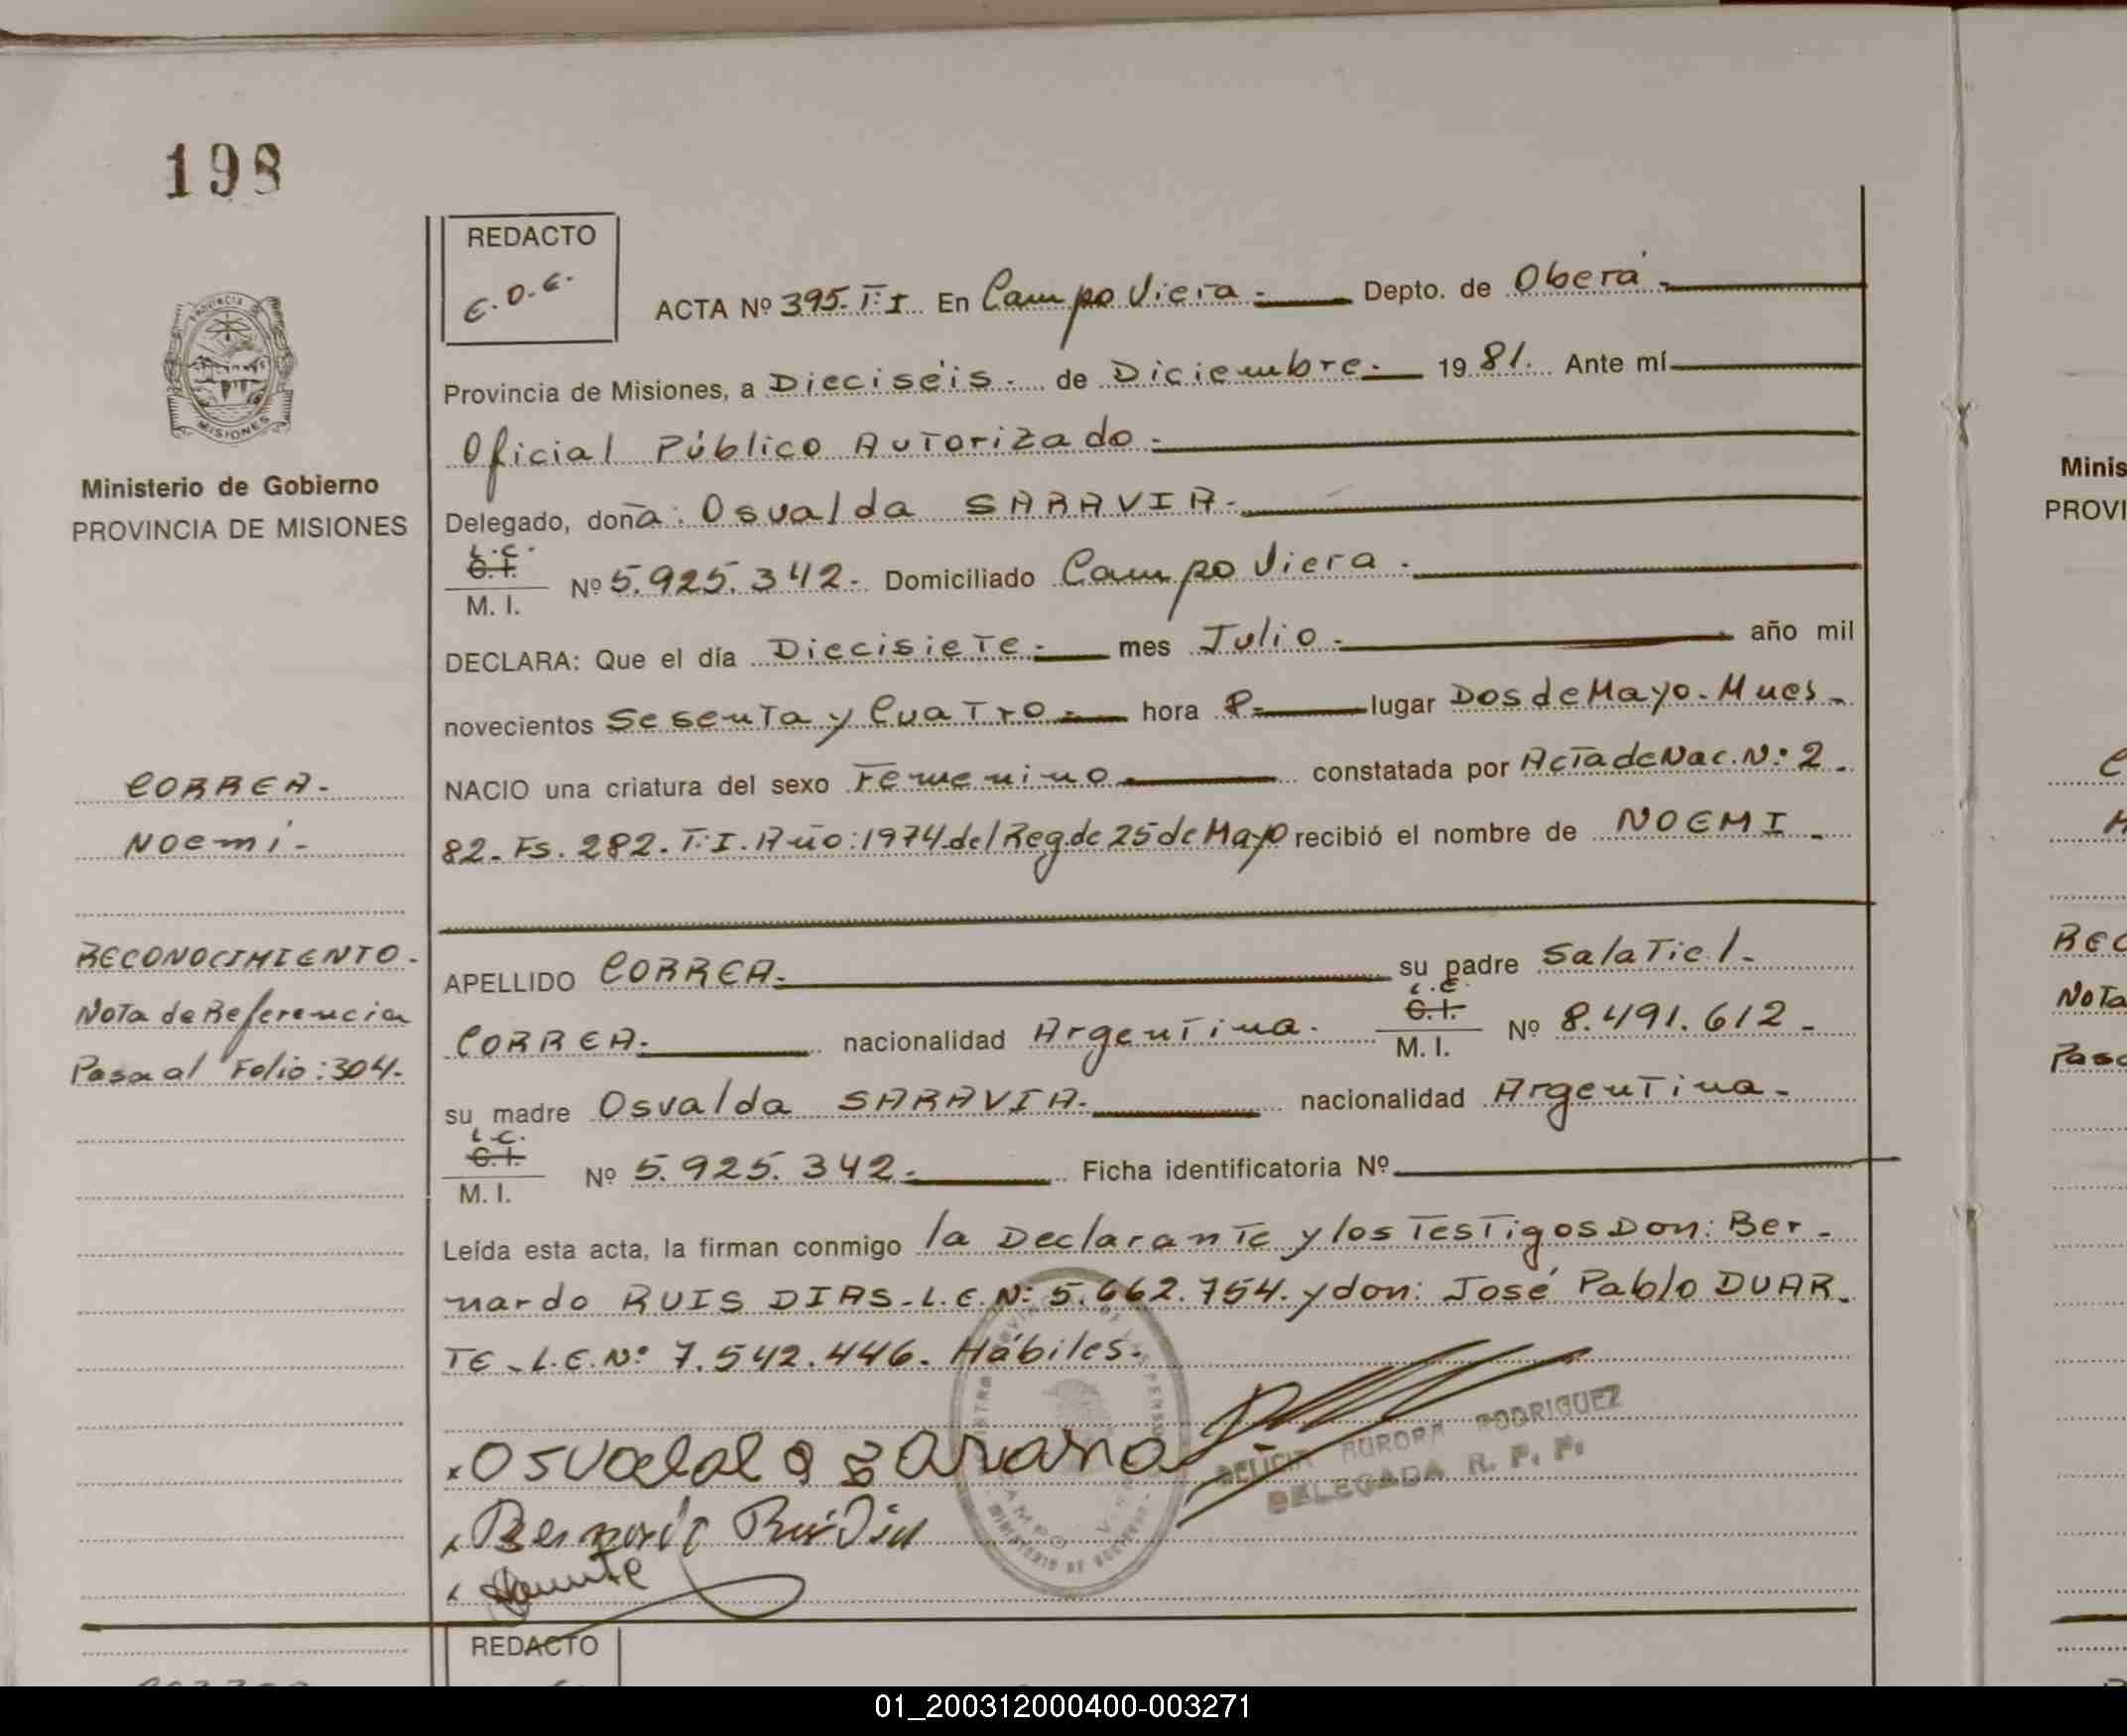 198
REDACTO
E.D.E.
ACTA Nº 395. T: I En Campo Viera.- Depto. de Oberá.-
Provincia de Misiones, a Dieciséis. de Diciembre.- 1981. Ante mí
Oficial Público Autorizado.-
Delegado, doña: Osvalda SARAVIA.-
L.C.
C.I.
M. I. Nº 5.925.342.- Domiciliado Campo Viera.-
DECLARA: Que el día Diecisiete.- mes Julio.- año mil
novecientos Sesenta y Cuatro.- hora 8.- lugar Dos de Mayo. Mnes.-
NACIO una criatura del sexo Femenino constatada por Acta de Nac. Nº 2
82. Fs. 282. T: I. Año: 1974. del Reg. de 25 de Mayo recibió el nombre de NOEMI.-
APELLIDO CORREA.- su padre Salatiel.-
CORREA.- nacionalidad Argentina. L.E. C.I. M. I. Nº 8.491.612.-
su madre Osvalda SARAVIA.- nacionalidad Argentina.-
L.C.
C.I.
M. I. Nº 5.925.342.- Ficha identificatoria Nº
Leída esta acta, la firman conmigo la Declarante y los Testigos Don: Ber-
nardo RUIS DIAS. L.E. Nº 5.662.754. y don: José Pablo DUAR-
TE. L.E. Nº 7.542.446. Hábiles.
MISIONES
Ministerio de Gobierno
PROVINCIA DE MISIONES
CORREA.-
Noemí.-
RECONOCIMIENTO.
Nota de Referencia
Pasa al Folio: 304.
AURORA RODRIGUEZ
DELEGADA R. P. P.
REDACTO
Minis
PROVI
REC
Nota
Pasa
01_200312000400-003271